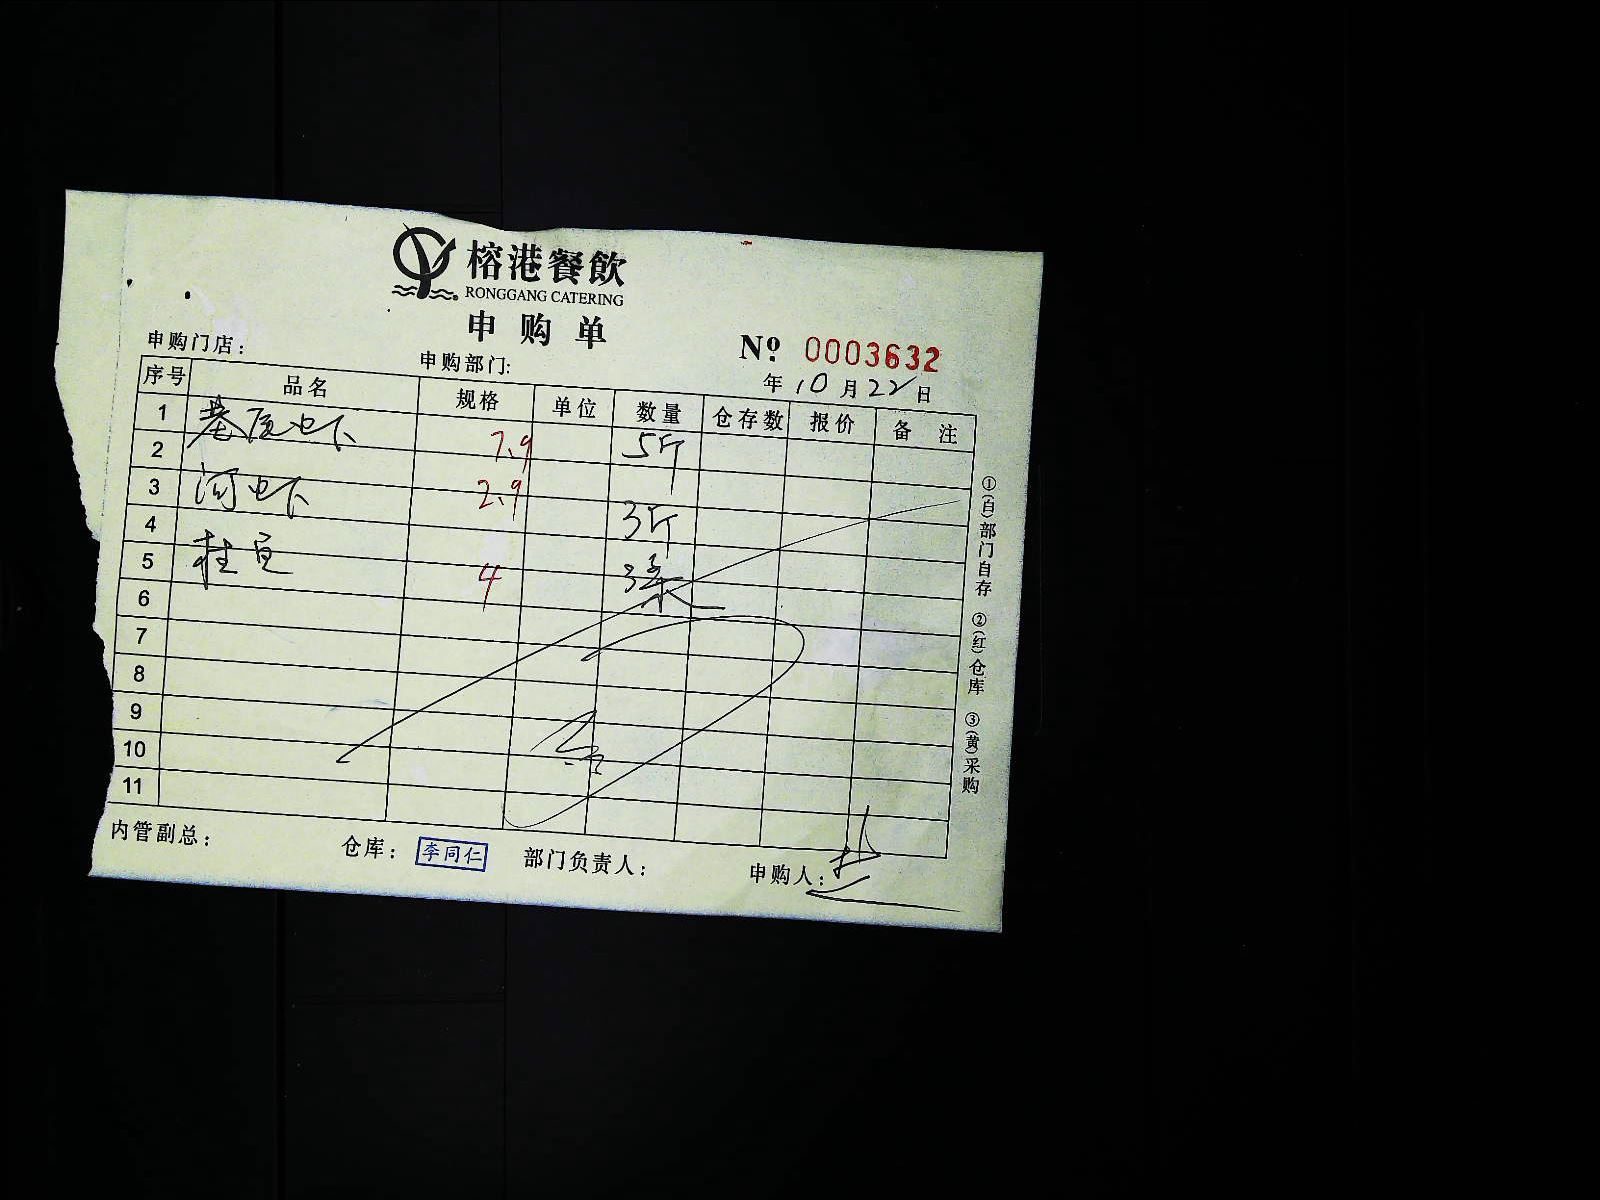 榕港餐飲
RONGGANG CATERING
申购单
申购门店：
申购部门:
№ 0003632
年 10 月 22 日
序号 品名 规格 单位 数量 仓存数 报价 备注
1 基尾虾 7.9 5斤
2
3 河虾 2.9 3斤
4
5 桂鱼 4 3条
6
7
8
9
10
11
①(白)部门自存 ②(红)仓库 ③(黄)采购
内管副总： 仓库： 李同仁 部门负责人： 申购人：